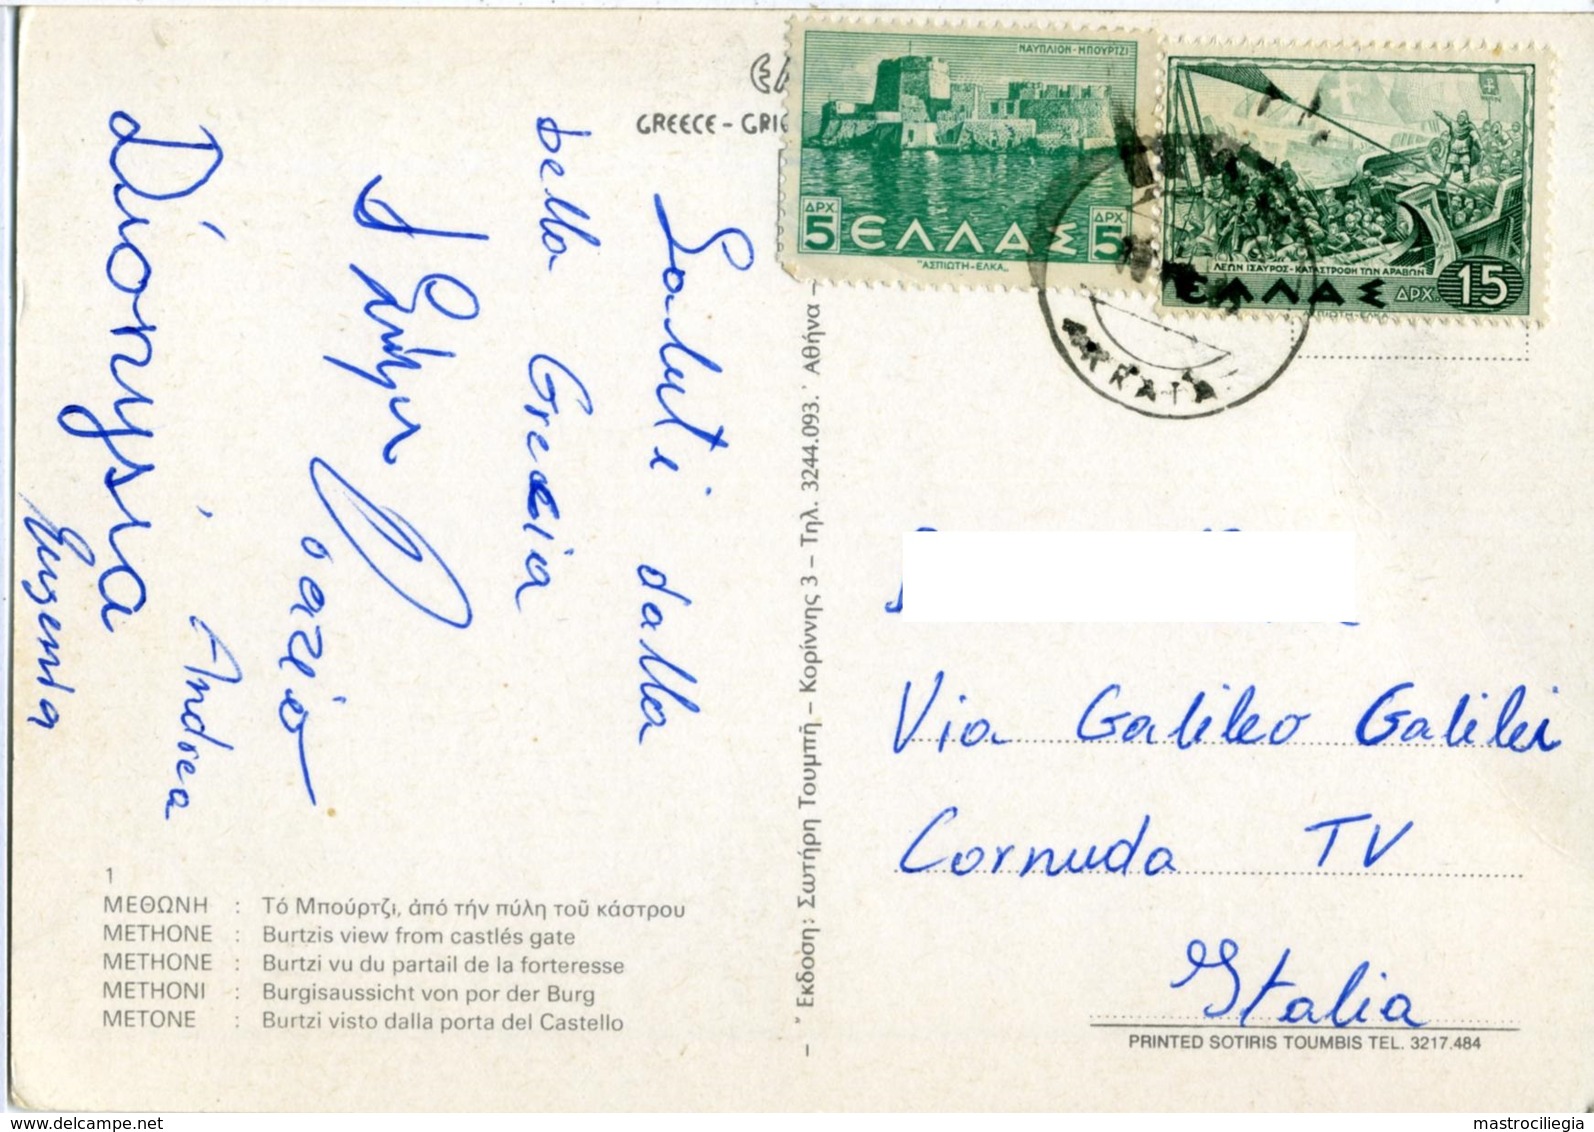 GREECE - GRIE
ΝΑΥΠΛΙΟΝ-ΜΠΟΥΡΤΖΙ
ΔΡΧ. 5 ΕΛΛΑΣ ΔΡΧ. 5
"ΑΣΠΙΩΤΗ-ΕΛΚΑ„
ΛΕΩΝ ΙΣΑΥΡΟΣ-ΚΑΤΑΣΤΡΟΦΗ ΤΩΝ ΑΡΑΒΩΝ
ΕΛΛΑΣ ΔΡΧ. 15
Saluti dalla
bella Grecia
Dionysia
Andrea
Eugenia
Via Galileo Galilei
Cornuda TV
Italia
1
ΜΕΘΩΝΗ : Τό Μπούρτζι, ἀπό τήν πύλη τοῦ κάστρου
METHONE : Burtzis view from castlés gate
METHONE : Burtzi vu du partail de la forteresse
METHONI : Burgisaussicht von por der Burg
METONE : Burtzi visto dalla porta del Castello
– "Εκδοση: Σωτήρη Τουμπή – Κορίννης 3 – Τηλ. 3244.093. ᾿Αθήνα –
PRINTED SOTIRIS TOUMBIS TEL. 3217.484
mastrociliegia